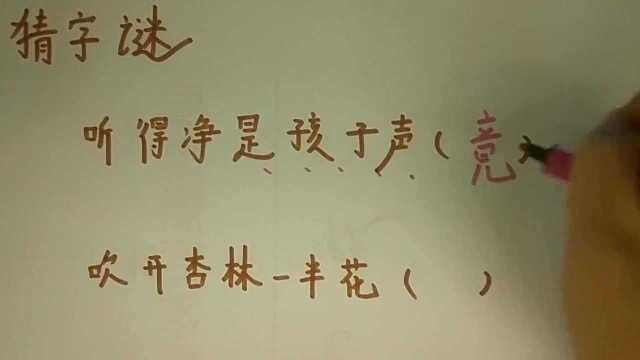 猜字谜
听得净是孩子声(竟)
吹开杏林一半花( )